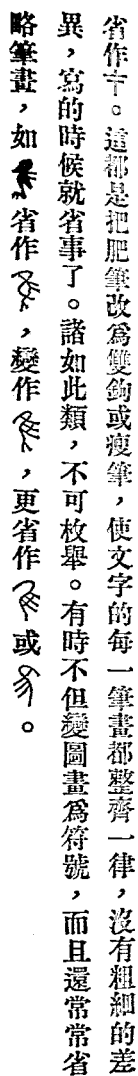 省作十。這都是把肥筆改爲雙鉤或瘦筆，使文字的每一筆畫都整齊一律，沒有粗細的差
異，寫的時候就省事了。諸如此類，不可枚舉。有時不但變圖畫爲符號，而且還常常省
略筆畫，如省作，變作，更省作或。